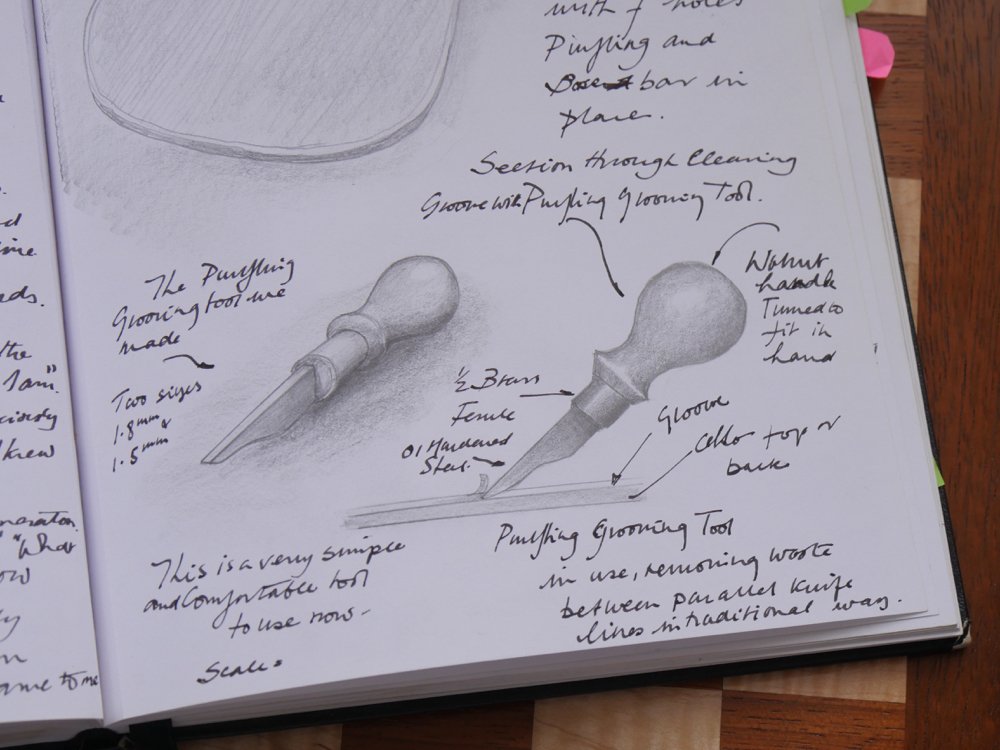 with f holes
Purfling and
bar in
place.
Section through Cleaning
Groove with Purfling Grooving Tool.
The Purfling
Grooving tool we
made
Two sizes
1.8mm &
1.5mm
Walnut
handle
Turned to
fit in
hand
½ Brass
Ferule
O1 Hardened
Steel.
Groove
Cello top or
back
Purfling Grooving Tool
in use, removing waste
between parallel knife
lines in traditional way.
This is a very simple
and comfortable tool
to use now-
Scale:
eds.
the
I am"
knew
"What
ame to me